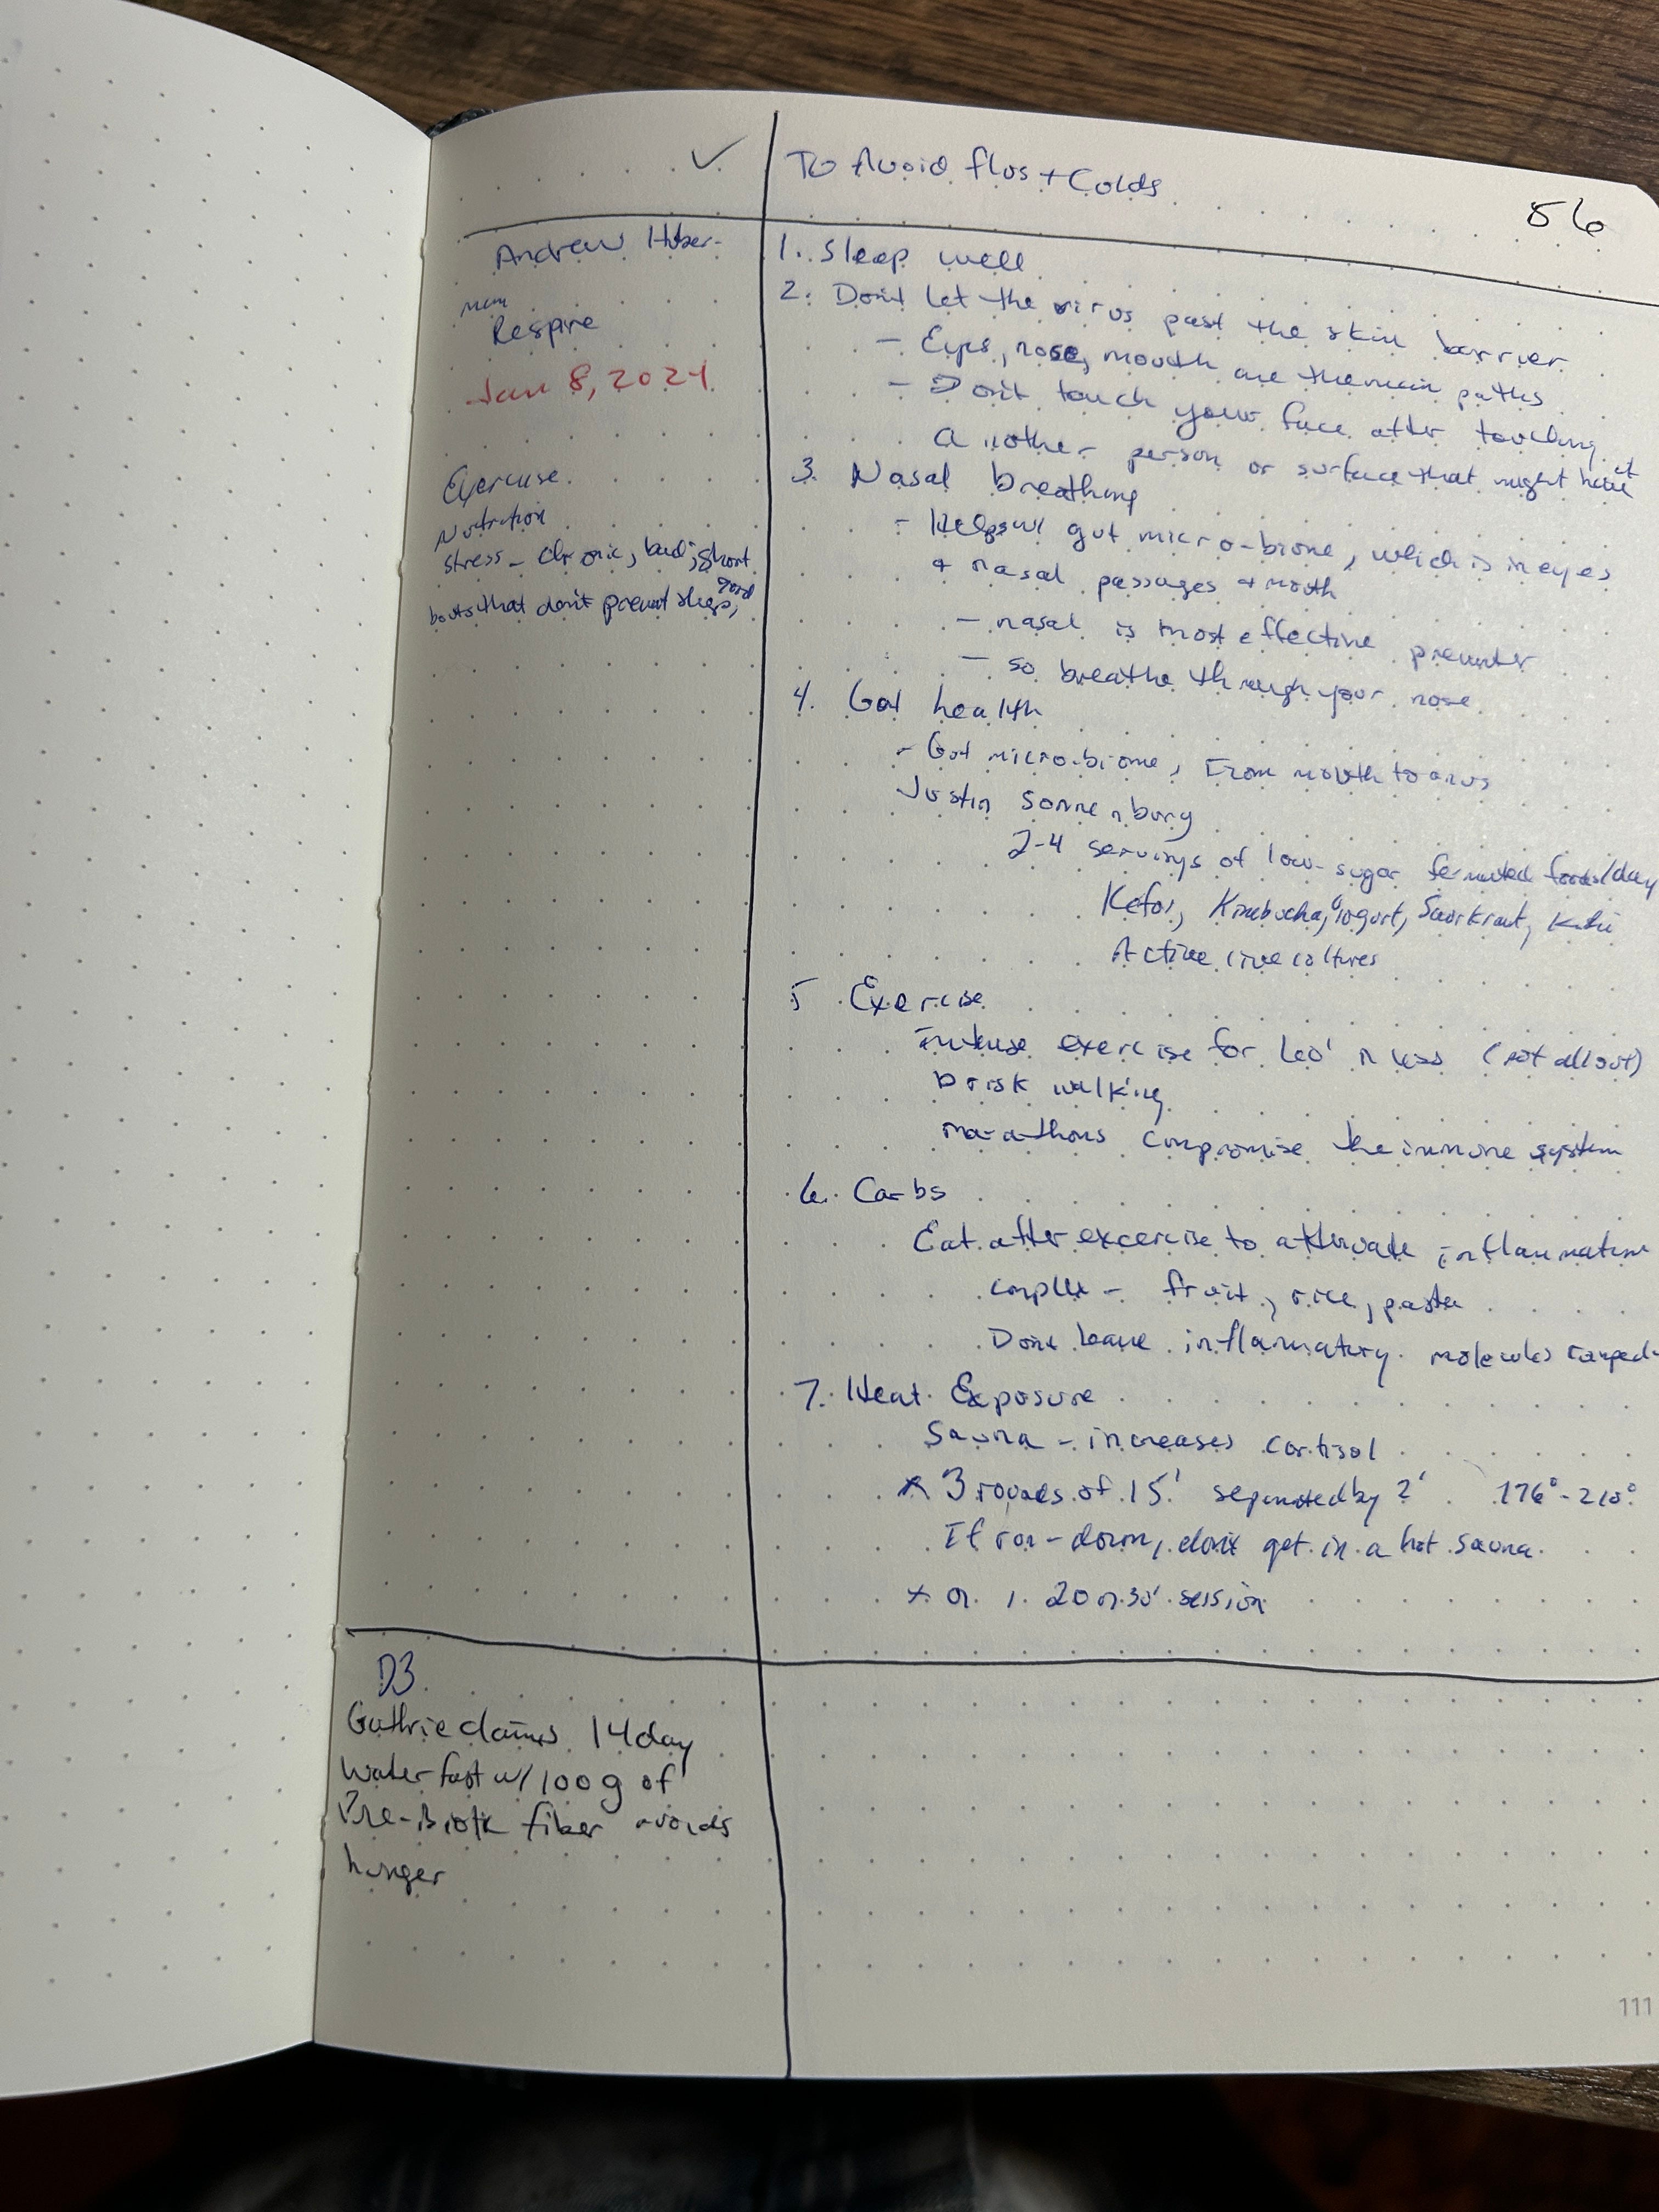 ✓
To Avoid flus + Colds
56
Andrew Huber-
man
Respire
Jan 8, 2024
Exercise
Nutrition
stress - chronic, bad; short
bouts that don't prevent sleep, good
1. Sleep well
2. Don't let the virus past the skin barrier
- Eyes, nose, mouth are the main paths
- Don't touch your face after touching
another person or surface that might have it
3. Nasal breathing
- Helps w/ gut micro-biome, which is in eyes
+ nasal passages + mouth
- nasal is most effective preventer
- so breathe through your nose
4. Gut health
- Gut micro-biome, From mouth to anus
Justin Sonnenburg
2-4 servings of low-sugar fermented foods/day
Kefir, Kombucha, Yogurt, Saurkraut,
Active live cultures
5 Exercise
Intense exercise for 60' or less (not all out)
brisk walking
marathons compromise the immune system
6. Carbs
Eat after excercise to attenuate inflammation
complex - fruit, rice, pasta
Don't leave inflammatory molecules
7. Heat Exposure
Sauna - increases cortisol
* 3 rounds of 15' separated by 2' 176° - 210°
If run-down, don't get in a hot sauna.
* or 1 20 or 30' session
D3
Guthrie claims 14 day
water fast w/ 100 g of
Pre-Biotic fiber avoids
hunger
111